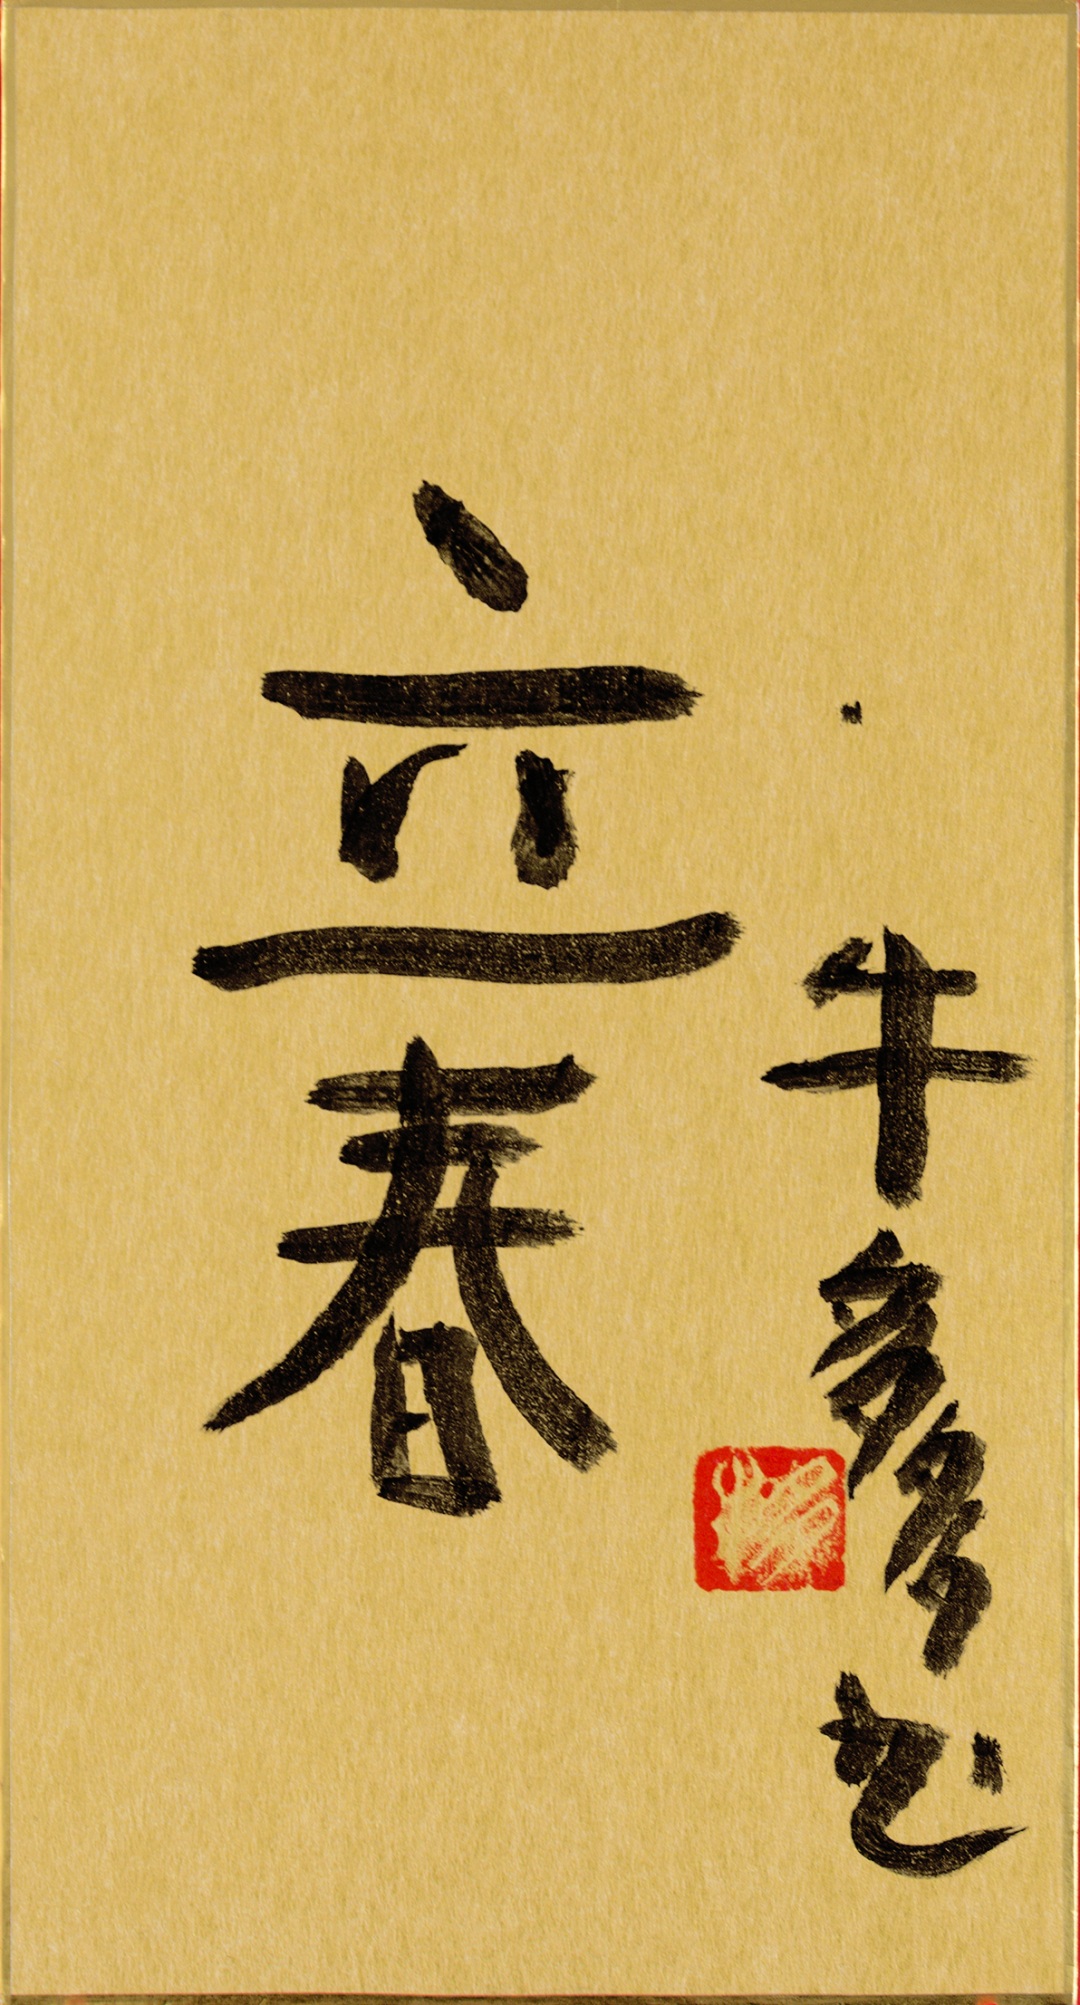 立春
牛多多书